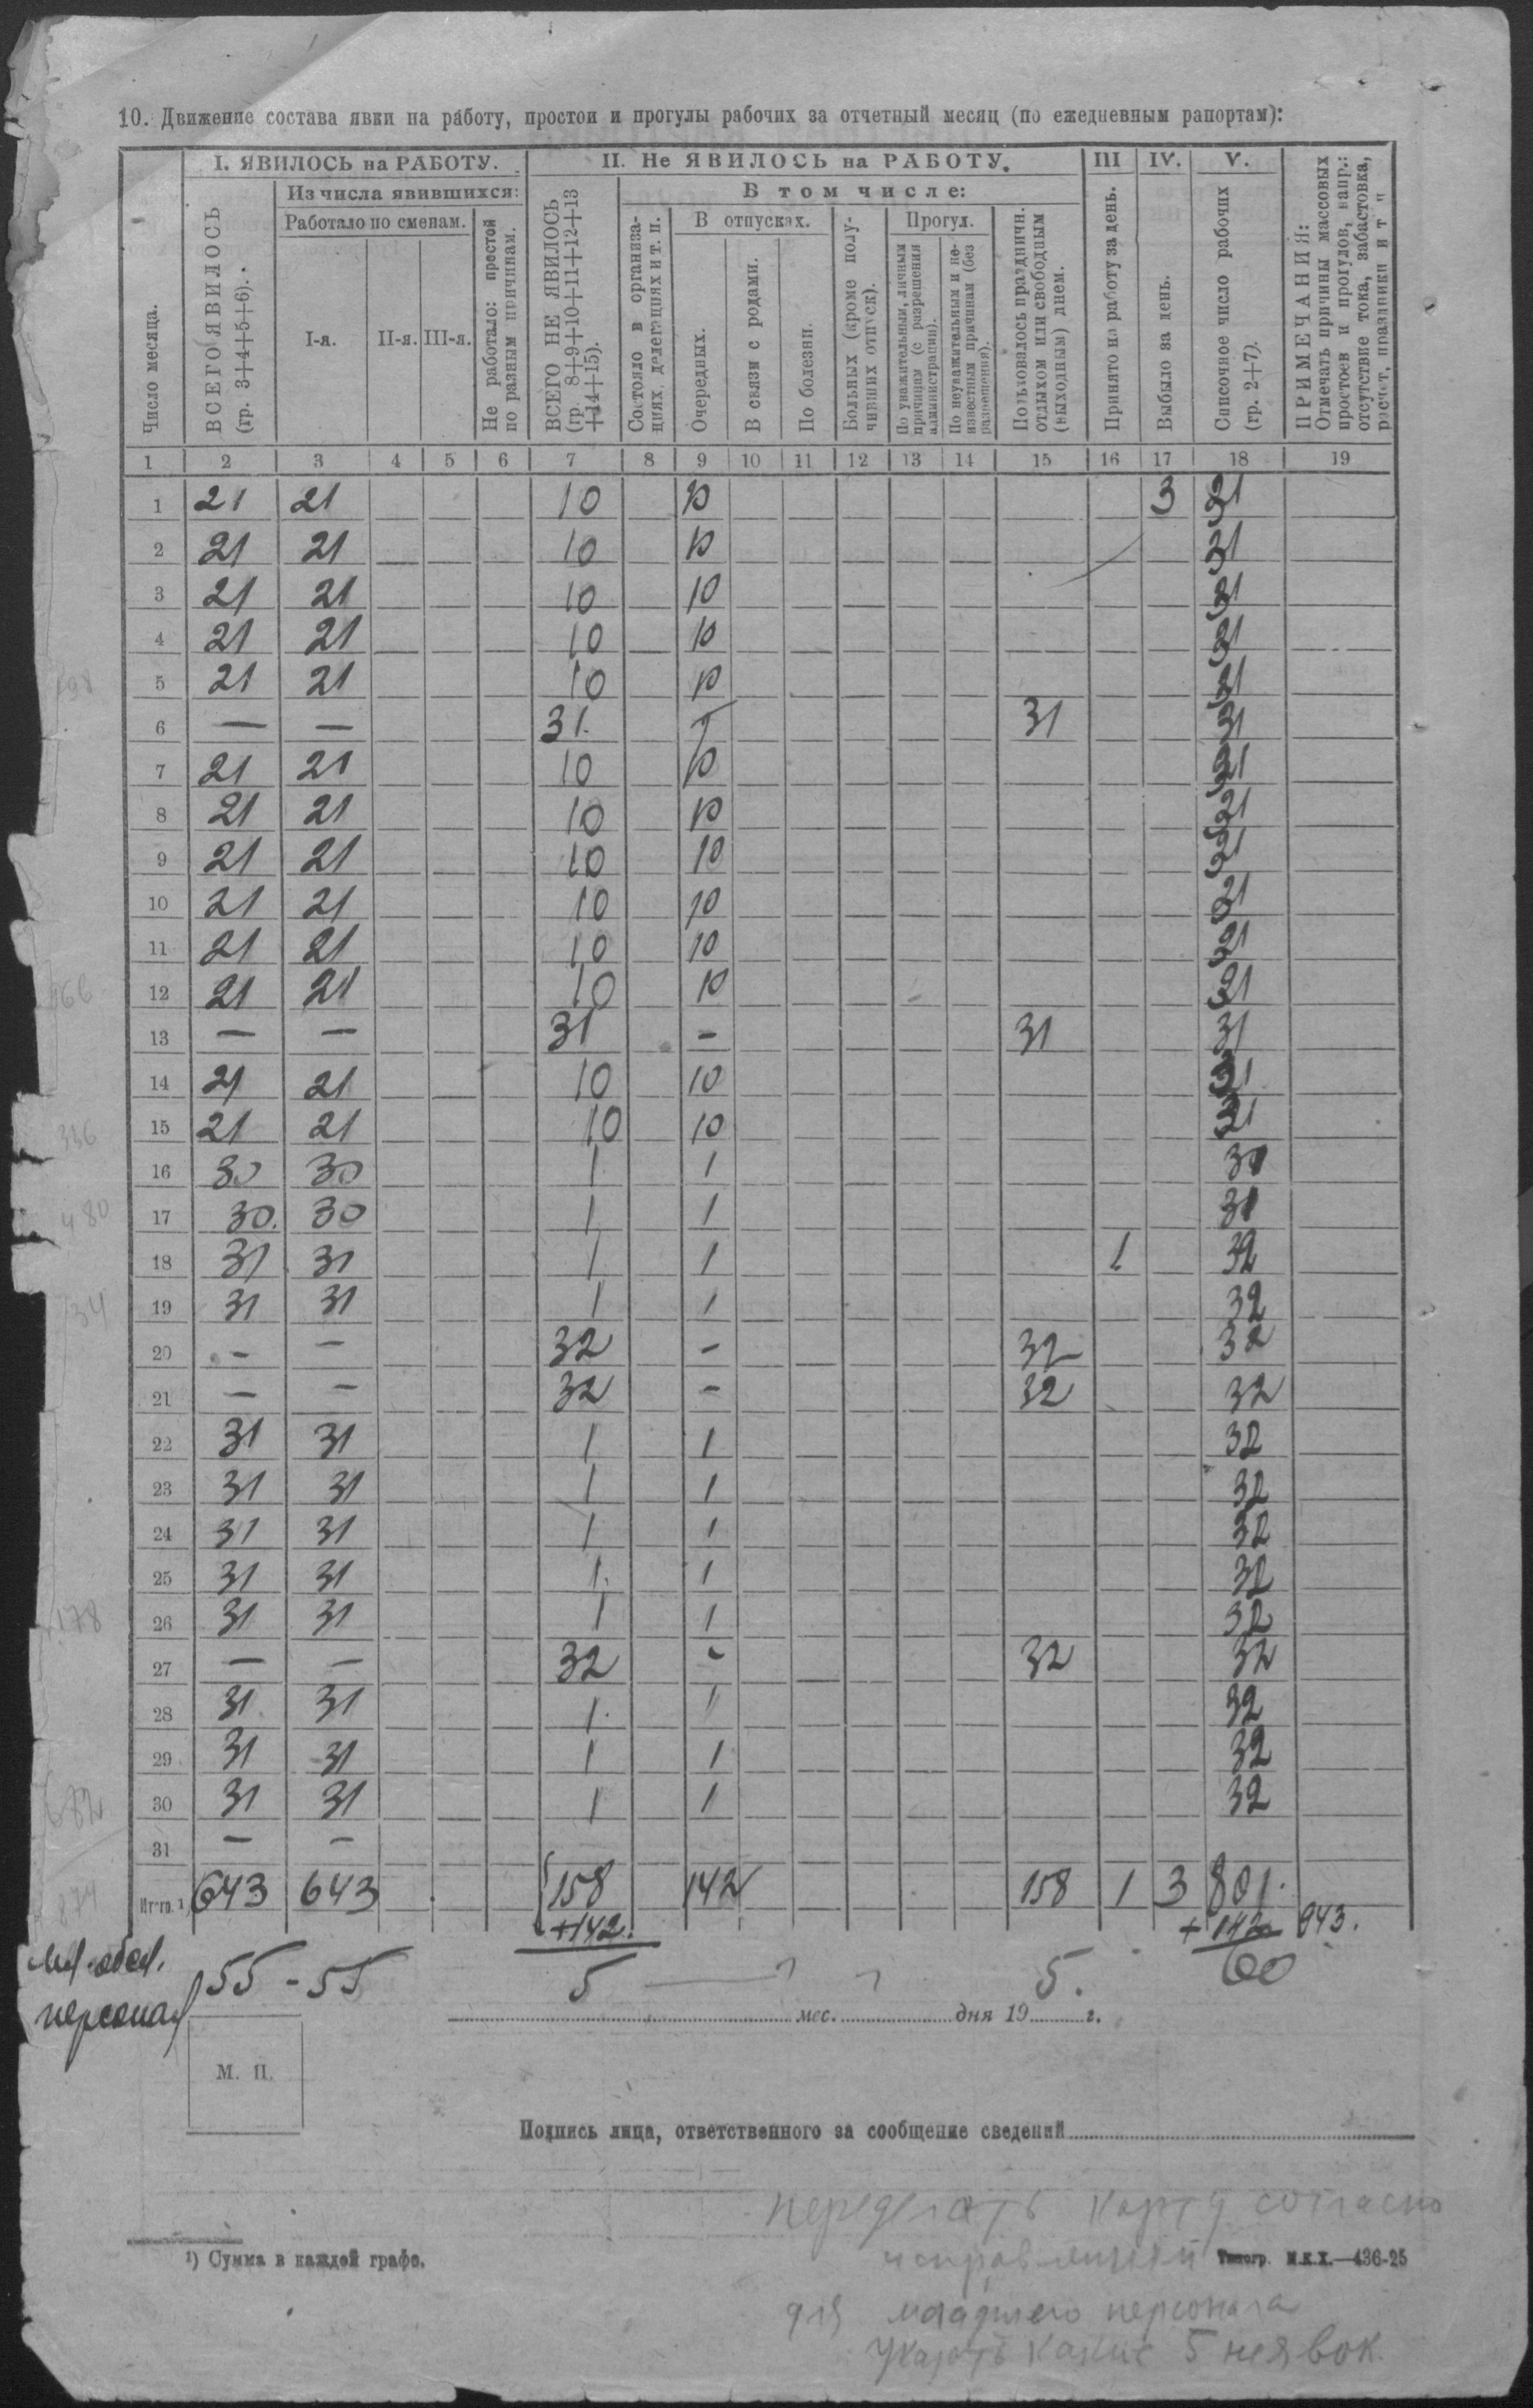 10. Движение состава явки на работу, простои и прогулы рабочих за отчетный месяц (по ежедневным рапортам):
Число месяца.
I. ЯВИЛОСЬ на РАБОТУ.
II. Не ЯВИЛОСЬ на РАБОТУ.
III
IV.
V.
ВСЕГО ЯВИЛОСЬ
(гр. 3+4+5+6).
Из числа явившихся:
Работало по сменам.
I-я.
II-я.
III-я.
Не работало: простой
по разным причинам.
ВСЕГО НЕ ЯВИЛОСЬ
(гр 8+9+10+11+12+13
+14+15).
В том числе:
Состояло в организа-
циях, делегациях и т. п.
В отпусках.
Очередных.
В связи с родами.
По болезни.
Больных (кроме полу-
чивших отпуск).
Прогул.
По уважительным, личным
причинам (с разрешения
администрации).
По неуважительным и не-
известным причинам (без
разрешения).
Пользовалось праздничн.
отдыхом или свободным
(выходным) днем.
Принято на работу за день.
Выбыло за день.
Списочное число рабочих
(гр. 2+7).
ПРИМЕЧАНИЯ:
Отмечать причины массовых
простоев и прогулов, напр.:
отсутствие тока, забастовка,
расчет, праздники и т п
1 2 3 4 5 6 7 8 9 10 11 12 13 14 15 16 17 18 19
1 21 21 10 10 3 31
2 21 21 10 10 31
3 21 21 10 10 31
4 21 21 10 10 31
5 21 21 10 10 31
6 — — 31. 31 31
7 21 21 10 10 31
8 21 21 10 10 31
9 21 21 10 10 31
10 21 21 10 10 31
11 21 21 10 10 31
12 21 21 10 10 31
13 — — 31 - 31 31
14 21 21 10 10 31
15 21 21 10 10 31
16 30 30 1 1 31
17 30. 30 1 1 31
18 31 31 1 1 1 32
19 31 31 1 1 32
20 - - 32 - 32 32
21 — - 32 - 32 32
22 31 31 1 1 32
23 31 31 1 1 32
24 31 31 1 1 32
25 31 31 1. 1 32
26 31 31 1 1 32
27 — — 32 - 32 32
28 31 31 1. 1 32
29 31 31 1 1 32
30 31 31 1 1 32
31 — -
Итого 1) 643 643 158 142 158 1 3 801.
+142. + 142 943.
Мл. обсл. 55 - 55 5 — 5. 60
персонал
мес. дня 19 г.
М. П.
Подпись лица, ответственного за сообщение сведений
переделать карту согласно
исправлений
1) Сумма в каждой графе.
Типогр. М.К.Х.—436-25
для младшего персонала
указать какие 5 неявок.